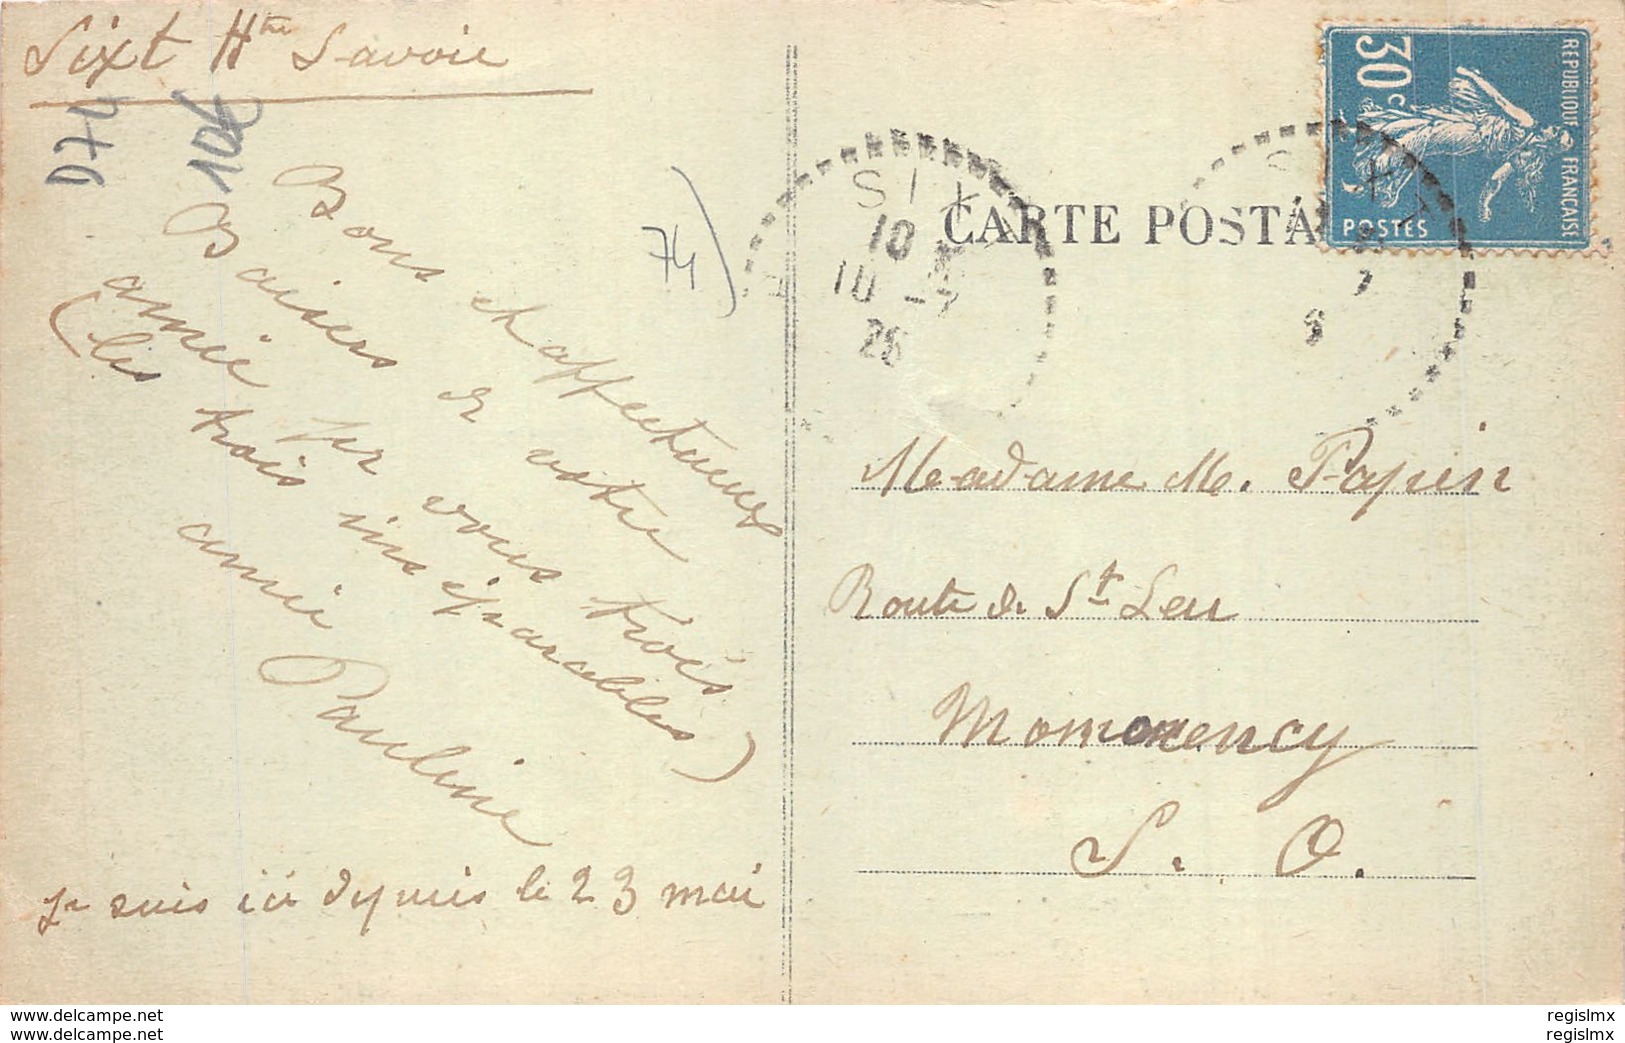 Sixt Hte Savoie
D74
10€
Bons et affectueux
Baisers de votre
amie pr vous trois
(les trois inséparables)
amie
Pauline
Je suis ici depuis le 23 mai
74)
SIXT
10
10 -7
26
CARTE POSTA
SIXT
7
REPUBLIQUE FRANCAISE
30 c
POSTES
Madame M. Papin
Route de St Leu
Momorency
S. O.
www.delcampe.net
www.delcampe.net
regislmx
regislmx